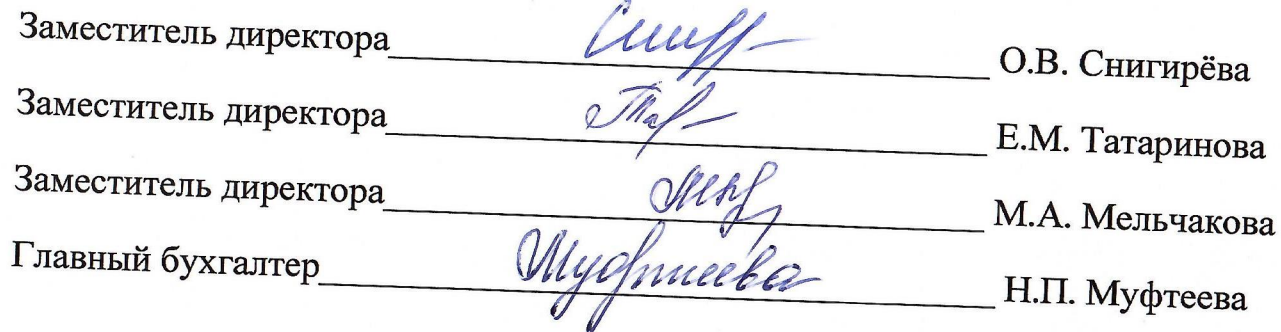 Заместитель директора О.В. Снигирёва
Заместитель директора Е.М. Татаринова
Заместитель директора М.А. Мельчакова
Главный бухгалтер Муфтеева Н.П. Муфтеева